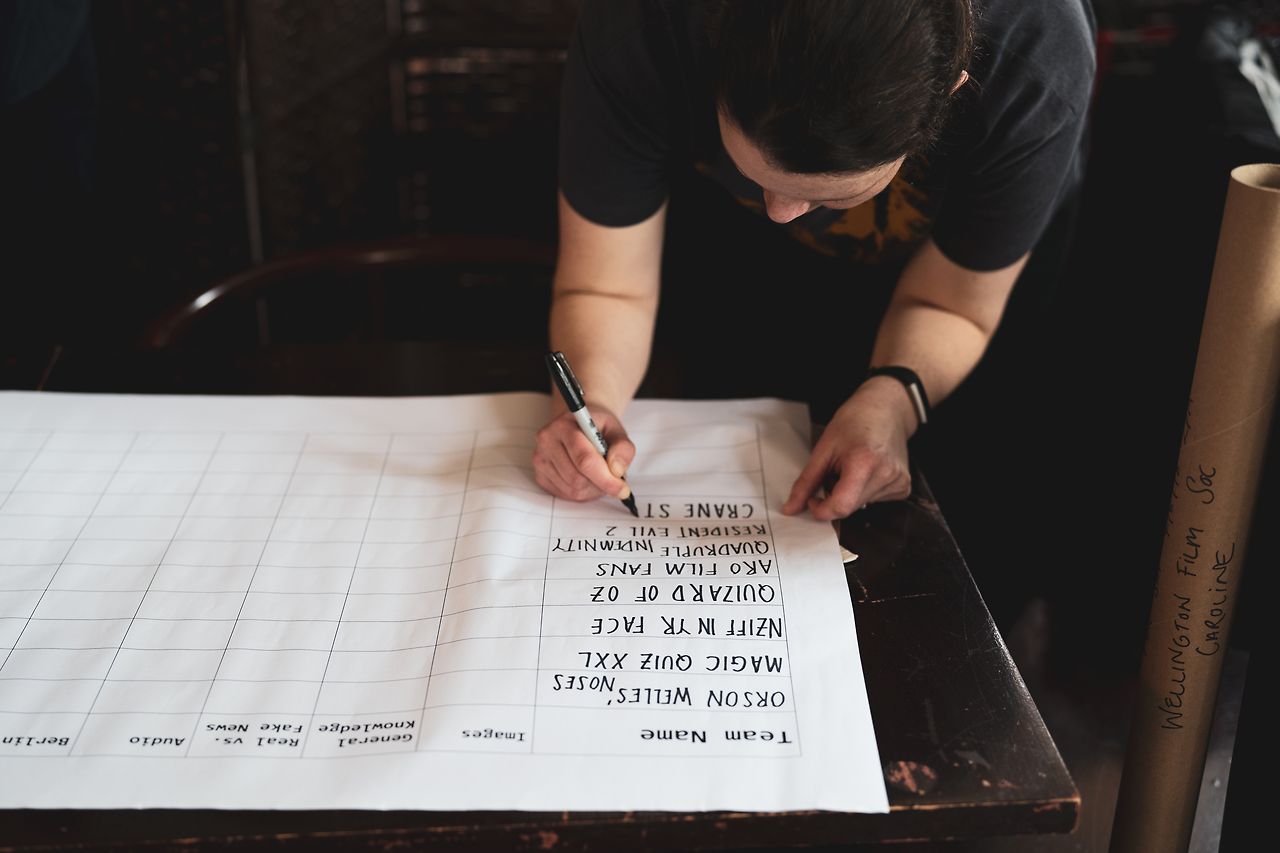 Team Name
Images
General
Knowledge
Real vs.
Fake News
Audio
Berlin
ORSON WELLES' NOSES
MAGIC QUIZ XXL
NZIFF IN YR FACE
QUIZARD OF OZ
ARO FILM FANS
QUADRUPLE INDEMNITY
RESIDENT EVIL 2
CRANE ST
WELLINGTON FILM SOC
CAROLINE